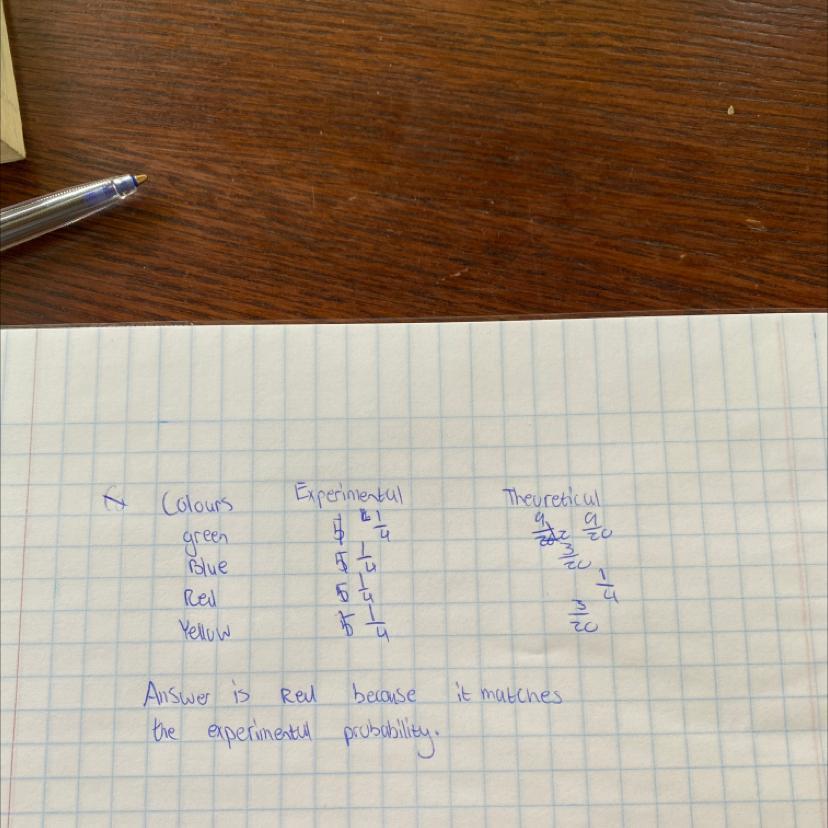 Colours Experimental Theoretical
green 1/4 9/20
Blue 1/4 3/20
Red 1/4 1/4
Yellow 1/4 3/20
Answer is Red because it matches
the experimental probability.